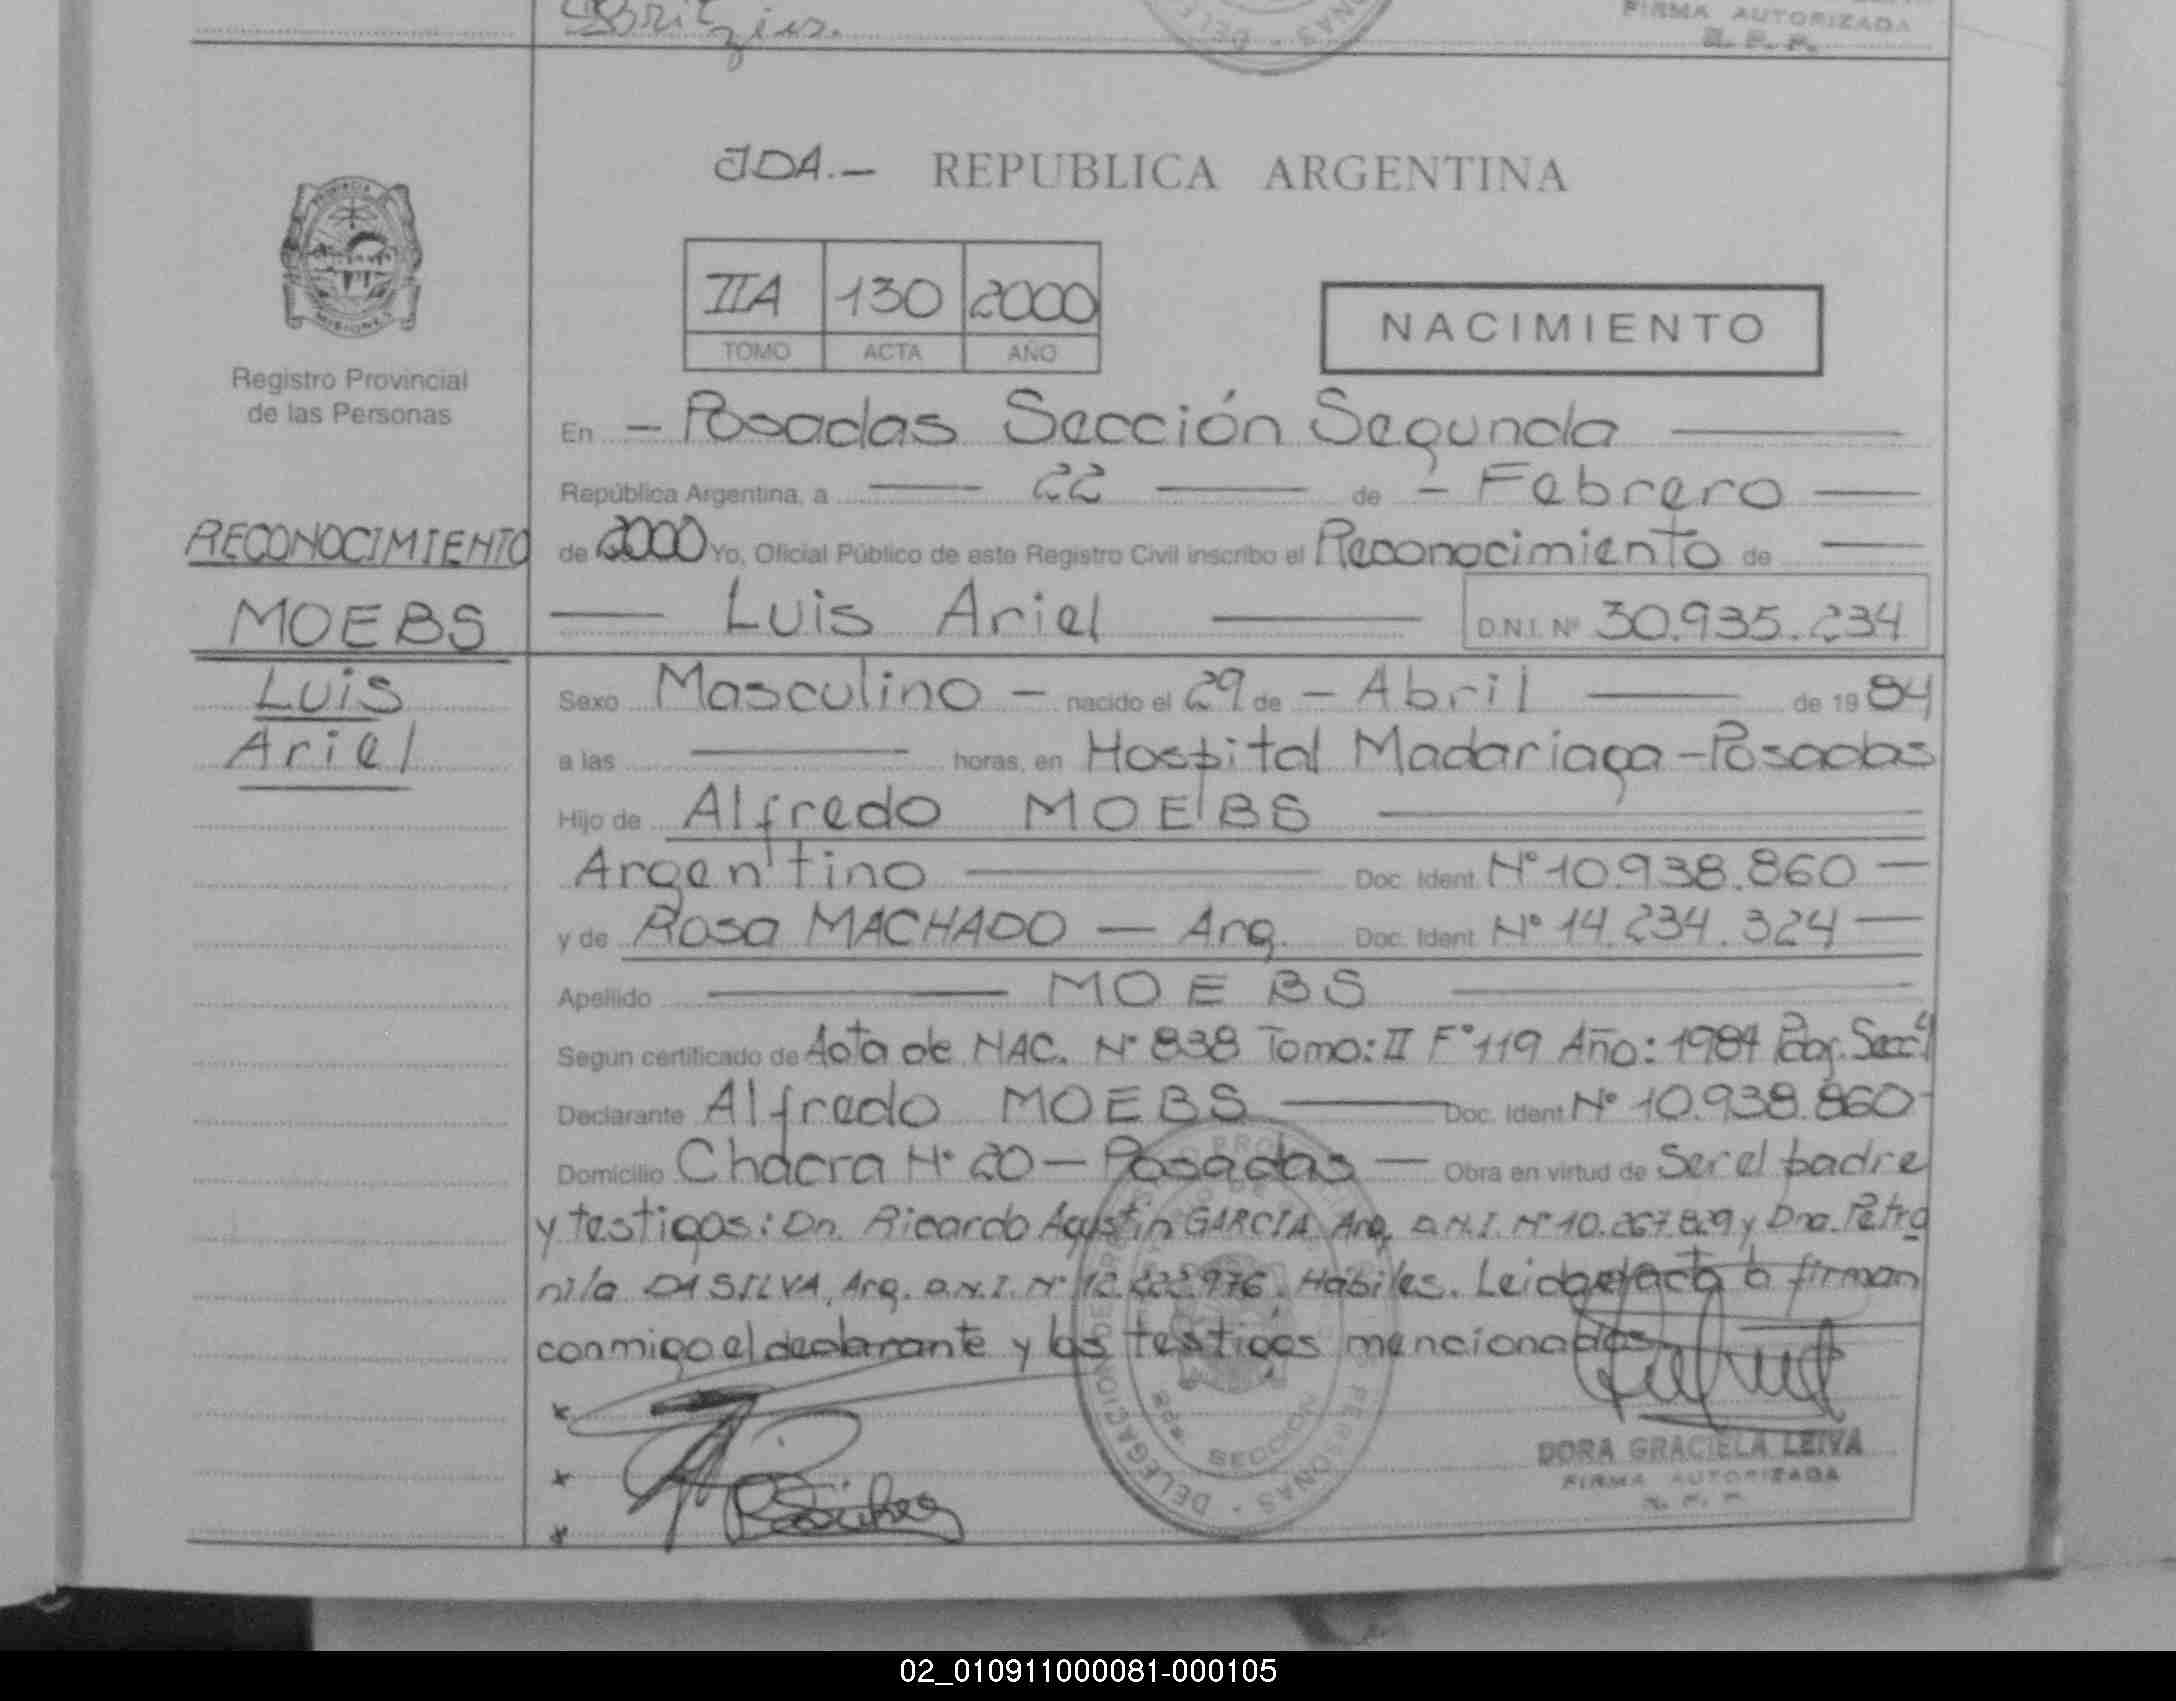 FIRMA AUTORIZADA
R. P. P.
JDA.- REPUBLICA ARGENTINA
PROVINCIA
MISIONES
IIA 130 2000
TOMO ACTA AÑO
NACIMIENTO
Registro Provincial
de las Personas
En - Posadas Sección Segunda
República Argentina, a 22 de - Febrero
RECONOCIMIENTO
de 2000 Yo, Oficial Público de este Registro Civil inscribo el Reconocimiento de
MOEBS
Luis Ariel D.N.I. Nº 30.935.234
Luis
Ariel
Sexo Masculino - nacido el 29 de - Abril de 1984
a las horas, en Hospital Madariaga - Posadas
Hijo de Alfredo MOEBS
Argentino Doc. Ident. Nº 10.938.860
y de Rosa MACHADO - Arg. Doc. Ident. Nº 14.234.324
Apellido MOEBS
Según certificado de Acta de NAC. Nº 838 Tomo: II Fº 119 Año: 1984
Declarante Alfredo MOEBS Doc. Ident. Nº 10.938.860
Domicilio Chacra Nº 20 - Posadas - Obra en virtud de Ser el padre
y testigos: Dn. Ricardo Agustín GARCIA Arg. D.N.I. Nº 10.267.829 y Dna. Petro
nila DA SILVA, Arg. D.N.I. Nº Hábiles. Leida el acta la firman
conmigo el declarante y los testigos mencionados
DORA GRACIELA LEIVA
FIRMA AUTORIZADA
SECCION
02_010911000081-000105